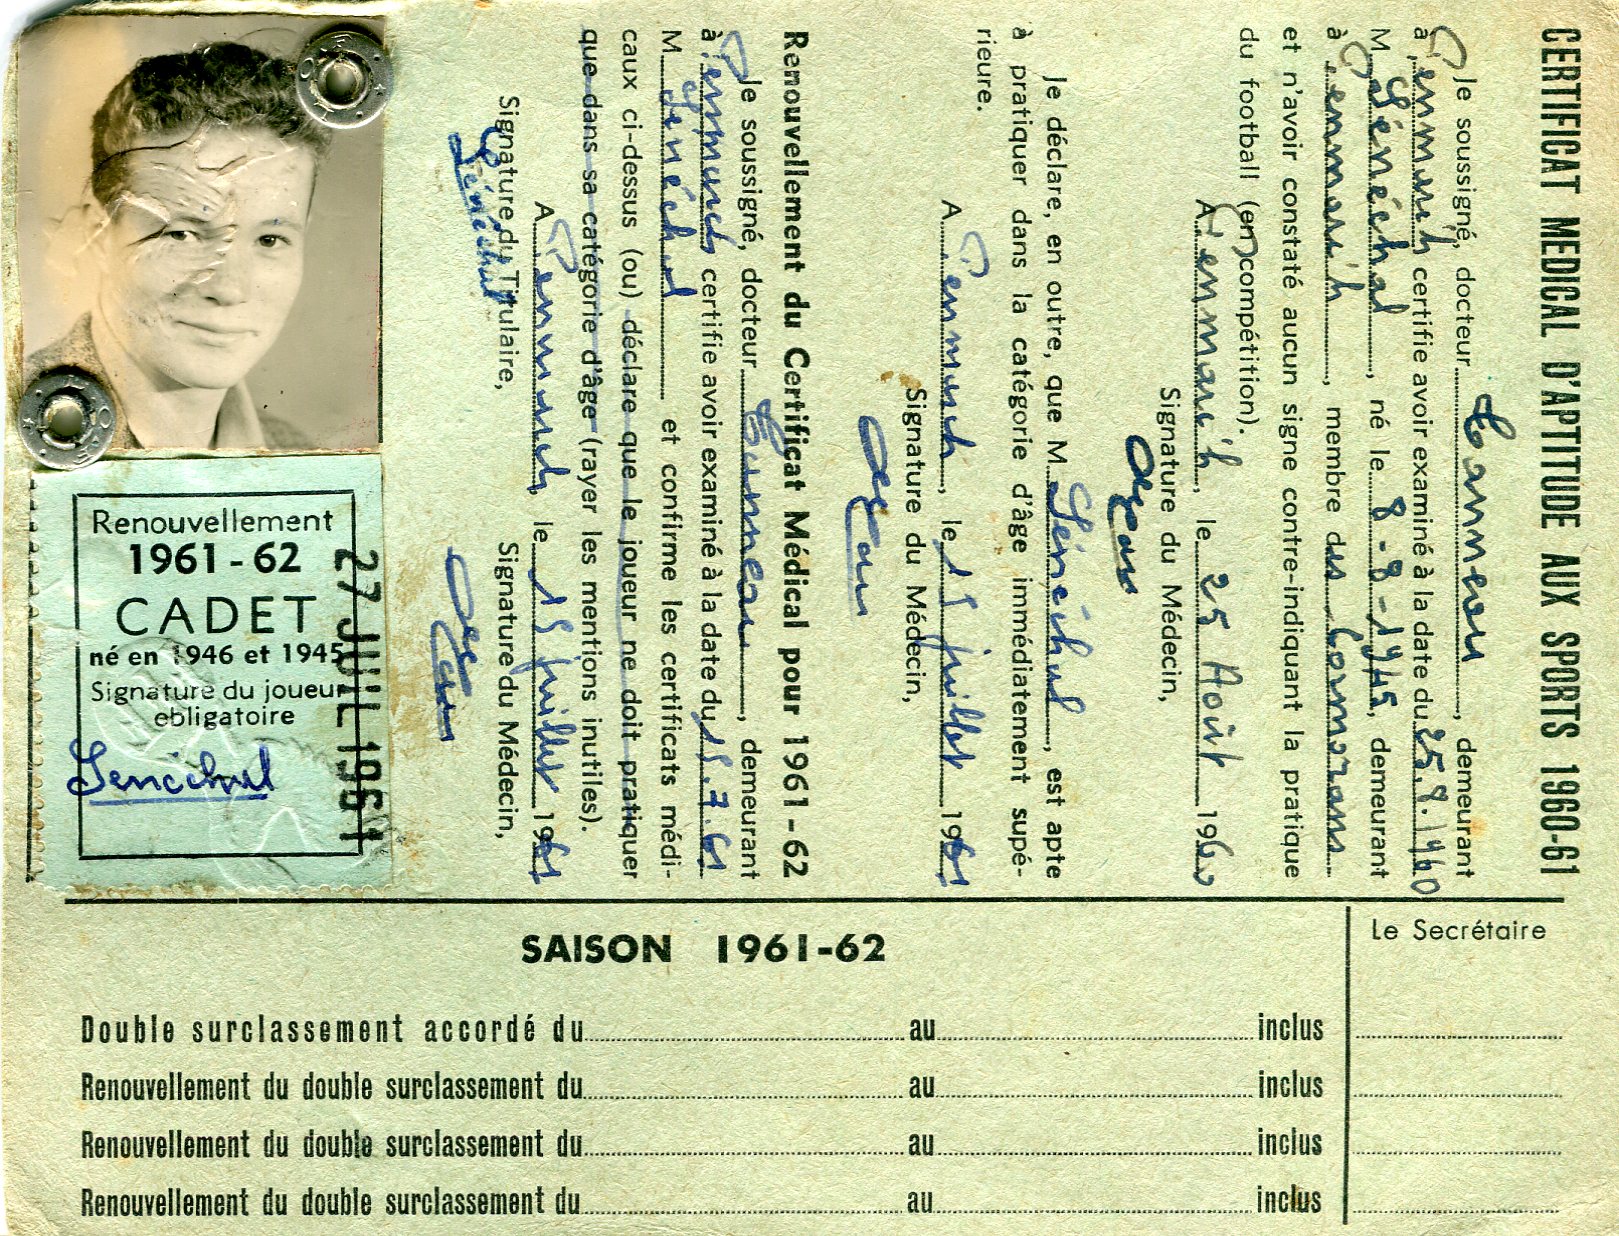 CERTIFICAT MEDICAL D'APTITUDE AUX SPORTS 1960-61
Je soussigné, docteur Canneau, demeurant
à Penmarc'h certifie avoir examiné à la date du 25.8.1960
M. Sénéchal, né le 8-8-1945, demeurant
à Penmarc'h, membre des Cormorans
et n'avoir constaté aucun signe contre-indiquant la pratique
du football (en compétition).
A Penmarc'h, le 25 Août 1960
Signature du Médecin,
Je déclare, en outre, que M. Sénéchal, est apte
à pratiquer dans la catégorie d'âge immédiatement supé-
rieure.
A Penmarch, le 15 juillet 1961
Signature du Médecin,
Renouvellement du Certificat Médical pour 1961-62
Je soussigné, docteur Canneau, demeurant
à Penmarch certifie avoir examiné à la date du 15.7.61
M. Sénéchal et confirme les certificats médi-
caux ci-dessus (ou) déclare que le joueur ne doit pratiquer
que dans sa catégorie d'âge (rayer les mentions inutiles).
A Penmarch, le 15 juillet 1961
Signature du Titulaire, Signature du Médecin,
Sénéchal
Renouvellement
1961-62
CADET
né en 1946 et 1945
Signature du joueur
obligatoire
Senechal
27 JUIL 1961
SAISON 1961-62
Le Secrétaire
Double surclassement accordé du au inclus
Renouvellement du double surclassement du au inclus
Renouvellement du double surclassement du au inclus
Renouvellement du double surclassement du au inclus